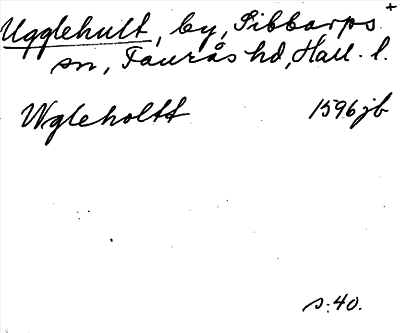 Ugglehult, by, Sibbarps +
sn, Faurås hd, Hall. l.
Wgleholtt 1596 jb
s. 40.